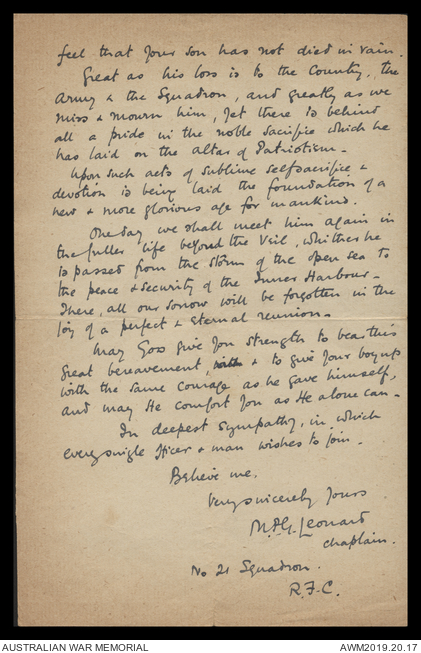 feel that your son has not died in vain.
Great as his loss is to the Country, the
Army & the Squadron, and greatly as we
miss & mourn him, yet there is behind
all a pride in the noble sacrifice which he
has laid on the altar of Patriotism.
Upon such acts of sublime selfsacrifice &
devotion is being laid the foundation of a
new & more glorious age for mankind.
One day we shall meet him again in
the fuller life beyond the Veil, whither he
is passed from the storm of the open sea to
the peace & security of the Inner Harbour.
There, all our sorrow will be forgotten in the
joy of a perfect & eternal reunion.
May God give you strength to bear this
great bereavement, & to give your boy up
with the same courage as he gave himself,
and may He comfort you as He alone can.
In deepest sympathy, in which
every single officer & man wishes to join.
Believe me,
Very sincerely yours
Leonard
Chaplain.
No 21 Squadron.
R.F.C.
AUSTRALIAN WAR MEMORIAL
AWM2019.20.17